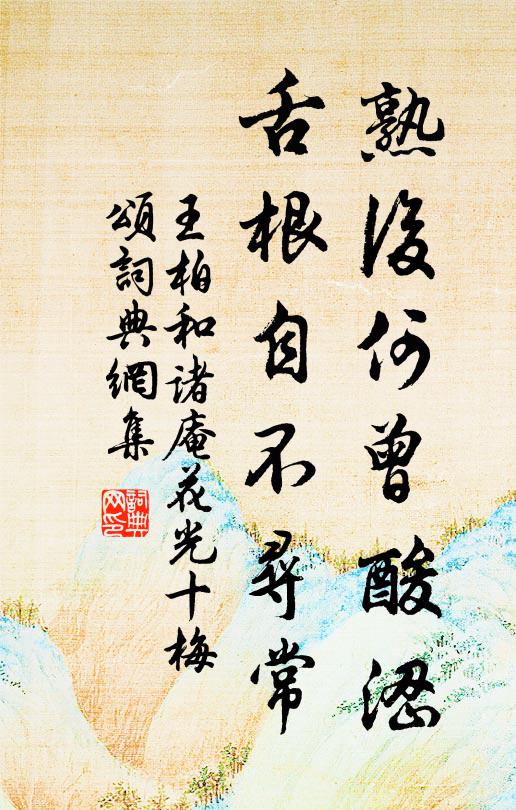 熟後何曾酸澀
舌根自不尋常
王柏和諸庵花光十梅
頌詞典網集
詞典網印